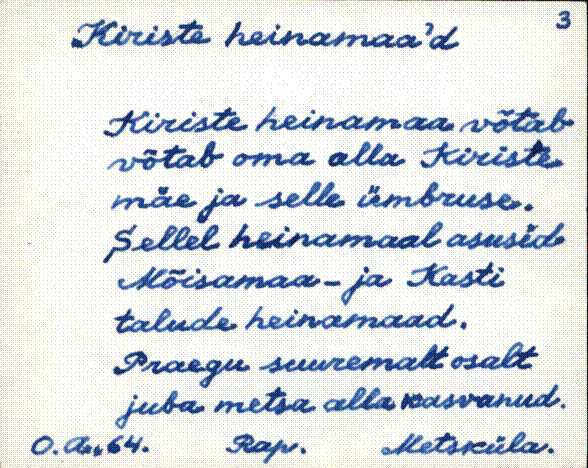 3
Kiriste heinamaa'd
Kiriste heinamaa võtab
võtab oma alla Kiriste
mäe ja selle ümbruse.
Sellel heinamaal asusid
Mõisamaa - ja Kasti
talude heinamaad.
Praegu suuremalt osalt
juba metsa alla kasvanud.
O. A. 64. Rap. Metsküla.